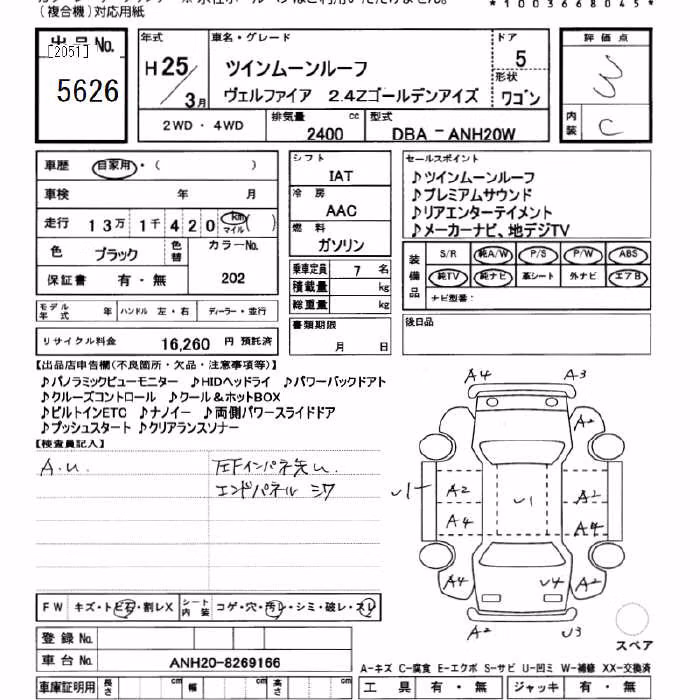 (複合機)対応用紙
*1003668045*
出品No.
[2051]
5626
年式
H25/3月
車名・グレード
ツインムーンルーフ
ヴェルファイア 2.4Zゴールデンアイズ
ドア
5
形状
ワゴン
評価点
内装
C
2WD ・ 4WD
排気量 cc
2400
型式
DBA － ANH20W
車歴 自家用・( )
車検 年 月
走行 13万 1千 420 km マイル ( )
色 ブラック 色替
カラーNo.
202
保証書 有・無
モデル年式 年 ハンドル 左・右 ディーラー・並行
リサイクル料金 16,260 円 預託済
シフト
IAT
冷房
AAC
燃料
ガソリン
乗車定員 7 名
積載量 kg
総重量 kg
書類期限
月 日
セールスポイント
♪ツインムーンルーフ
♪プレミアムサウンド
♪リアエンターテイメント
♪メーカーナビ、地デジTV
装備品
S/R 純A/W P/S P/W ABS
純TV 純ナビ 革シート 外ナビ エアB
ナビ型番:
後日品
【出品店申告欄(不良箇所・欠品・注意事項等)】
♪パノラミックビューモニター ♪HIDヘッドライ ♪パワーバックドアト
♪クルーズコントロール ♪クール&ホットBOX
♪ビルトインETC ♪ナノイー ♪両側パワースライドドア
♪プッシュスタート ♪クリアランスソナー
【検査員記入】
A.u.
エンドパネル
A4 A3
A2
U1 A2 U1 A2
A4 A4
A4 U4 A2
A2 U3
スペア
FW キズ・トビ石・割レX シート内装 コゲ・穴・汚レ・シミ・破レ・スレ
登録No.
車台No. ANH20-8269166
A-キズ C-腐食 E-エクボ S-サビ U-凹ミ W-補修 XX-交換済
車庫証明用 長さ cm 幅 cm 高さ cm
工具 有・無 ジャッキ 有・無